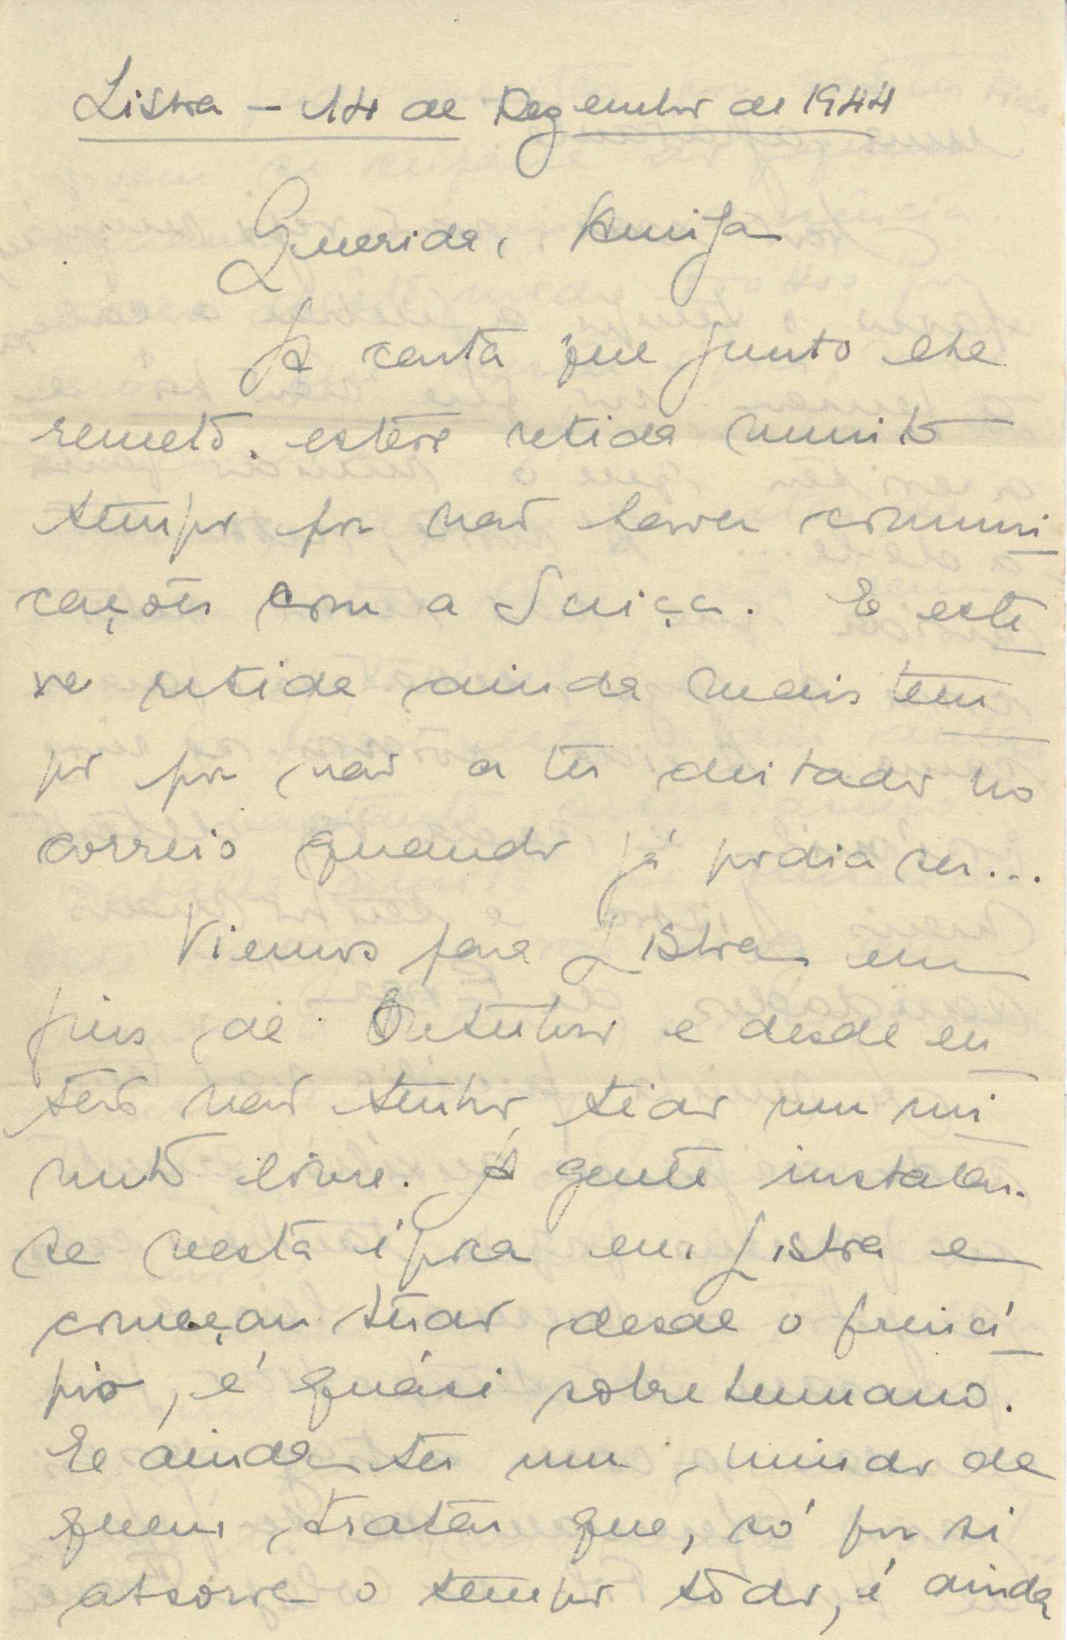 Lisboa – 14 de Dezembro de 1944
Querida Amiga
A carta que junto lhe
remeto, estêve retida muito
tempo por não haver comuni
cações com a Suiça. E estê
ve retida ainda mais tem
po por não a ter deitado no
correio quando já podia ser...
Viemos para Lisboa em
fins de Outubro e desde en
tão não tenho tido um mi
nuto livre. A gente instalar-
se nesta época em Lisboa e
começar tudo desde o princí
pio, é quási sobrehumano.
E ainda ter um miudo de
quem tratar que, só por si
absorve o tempo todo, é ainda